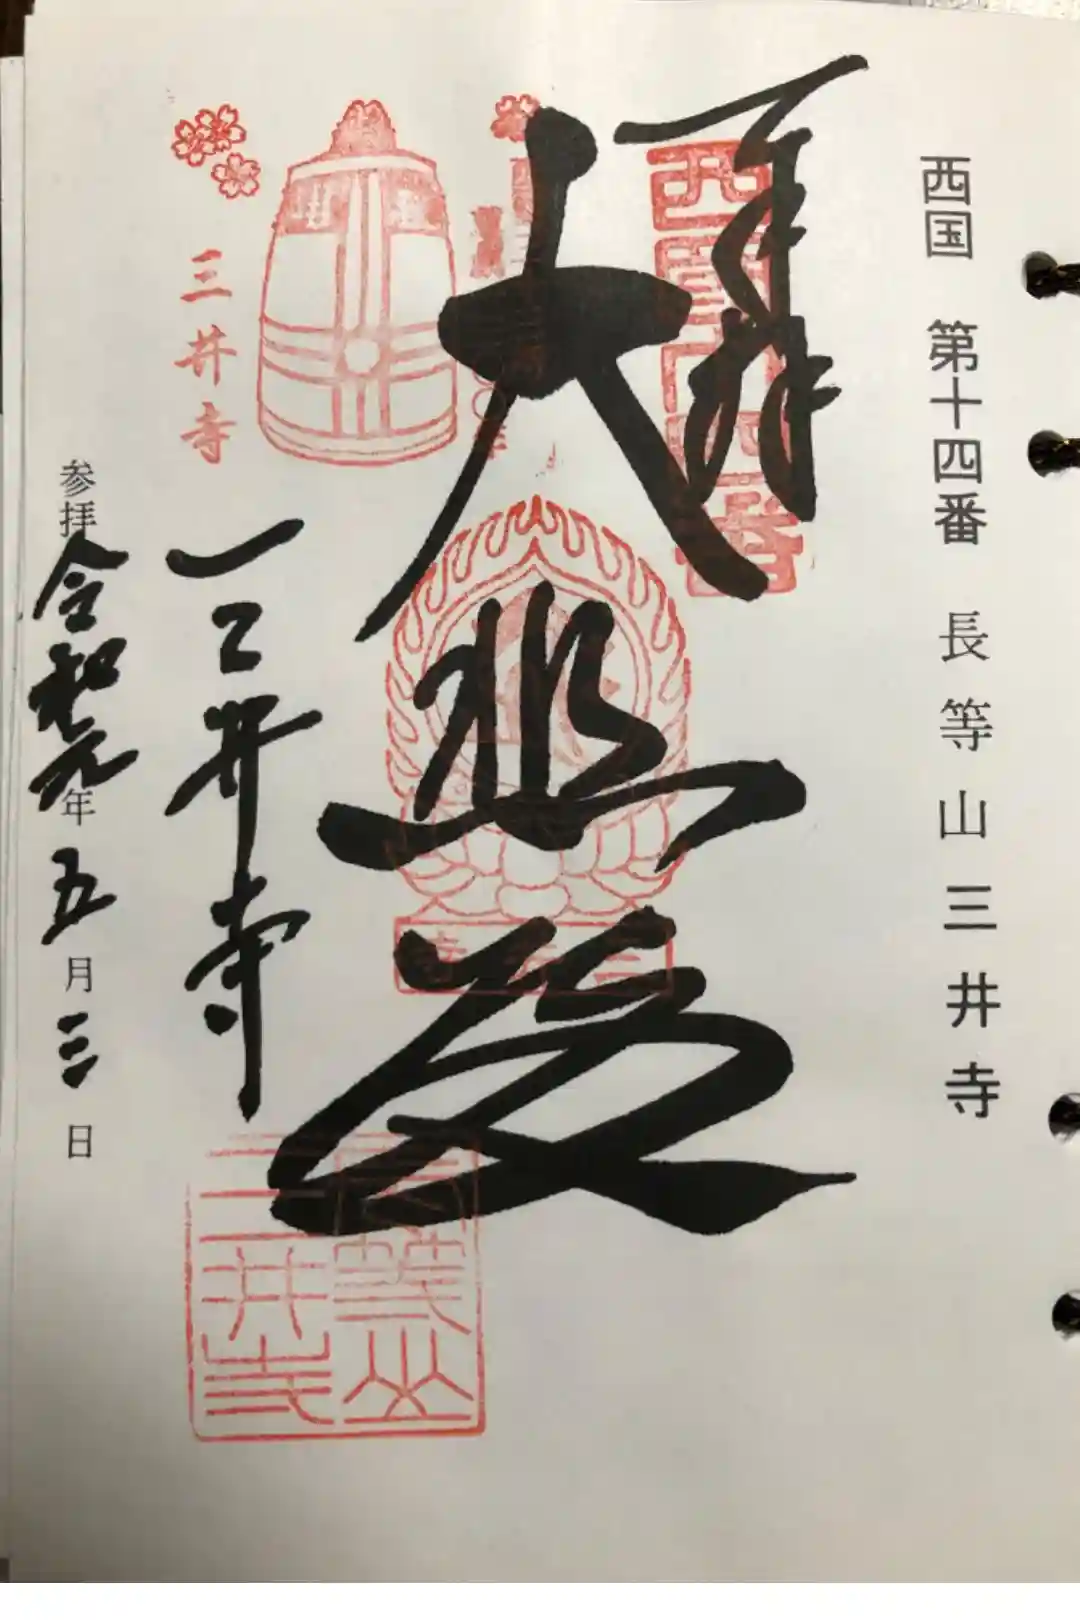 西国 第十四番 長等山三井寺
奉拝
西国十四番
大悲殿
三井寺
三井寺
三井寺
長等山
三井寺
参拝 令和元年 五月 三日